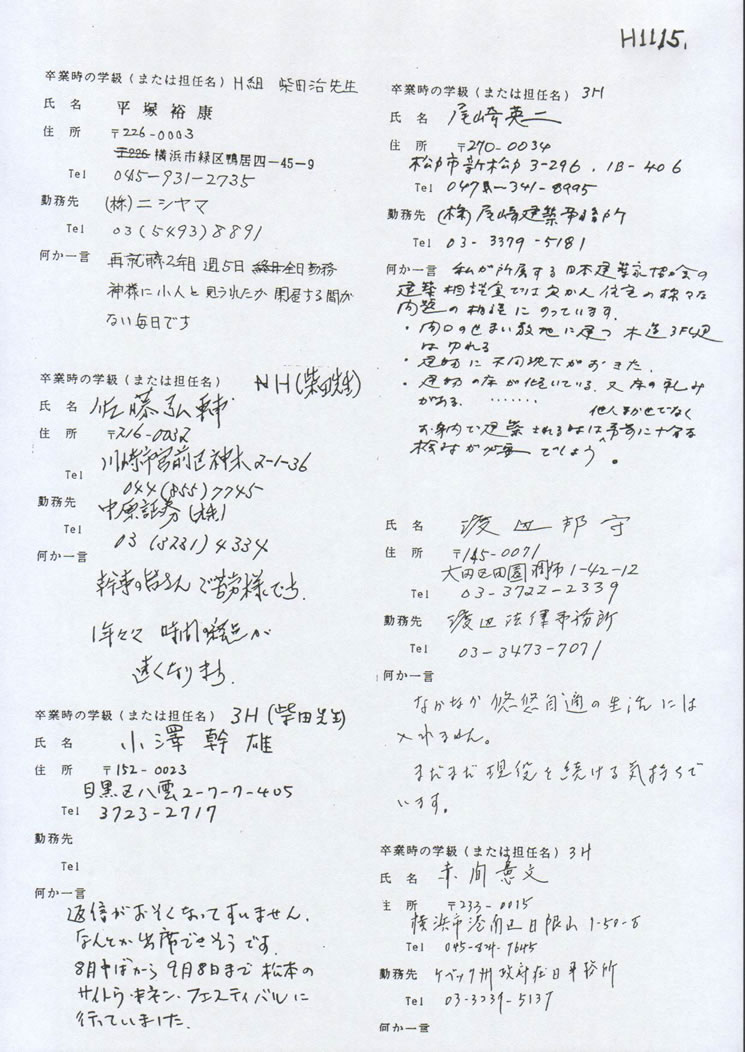 H11.15.
卒業時の学級（または担任名）H組 柴田治先生
氏 名 平塚裕康
住 所 〒226-0003
〒226 横浜市緑区鴨居四-45-9
Tel 045-931-2735
勤務先 (株)ニシヤマ
Tel 03(5493)8891
何か一言 再就職2年目 週5日 終日全日勤務
神様に小人と見うれたか 閑居する間が
ない毎日です
卒業時の学級（または担任名） H(柴田先生)
氏 名 佐藤弘幹
住 所 〒216-0032
川崎市宮前区神木2-1-36
Tel 044(855)7745
勤務先 中原証券(株)
Tel 03(3231)4334
何か一言
幹事の皆さん ご苦労様です.
1年々々 時間の経過が
速くなります.
卒業時の学級（または担任名）3H(柴田先生)
氏 名 小澤幹雄
住 所 〒152-0023
目黒区八雲2-7-7-405
Tel 3723-2717
勤務先
Tel
何か一言
返信がおそくなってすいません.
なんとか出席できそうです.
8月半ばから9月8日まで松本の
サイトウ・キネン・フェスティバルに
行っていました.
卒業時の学級（または担任名）3H
氏 名 尾崎英二
住 所 〒270-0034
松戸市新松戸3-296. 1B-406
Tel 047-341-8995
勤務先 (株)尾崎建築事務所
Tel 03-3379-5181
何か一言 私が所属する日本建築家協会の
建築相談室では 住宅の様々な
問題の相談にのっています.
・間口のせまい敷地に建つ木造3F建
はゆれる
・建物に不同沈下がおきた.
・建物の床が傾いている. 又床の軋み
がある. ……
他人まかせでなく
お身内で建築される時は事前に十分な
検討が必要でしょう。
氏 名 渡辺邦守
住 所 〒145-0071
大田区田園調布1-42-12
Tel 03-3722-2339
勤務先 渡辺法律事務所
Tel 03-3473-7071
何か一言
なかなか悠悠自適の生活には
入れません。
まだまだ現役を続ける気持ちで
います。
卒業時の学級（または担任名）3H
氏 名 赤間憲文
住 所 〒233-0015
横浜市港南区日限山1-50-8
Tel 045-824-7645
勤務先 ケベック州政府在日事務所
Tel 03-3239-5137
何か一言